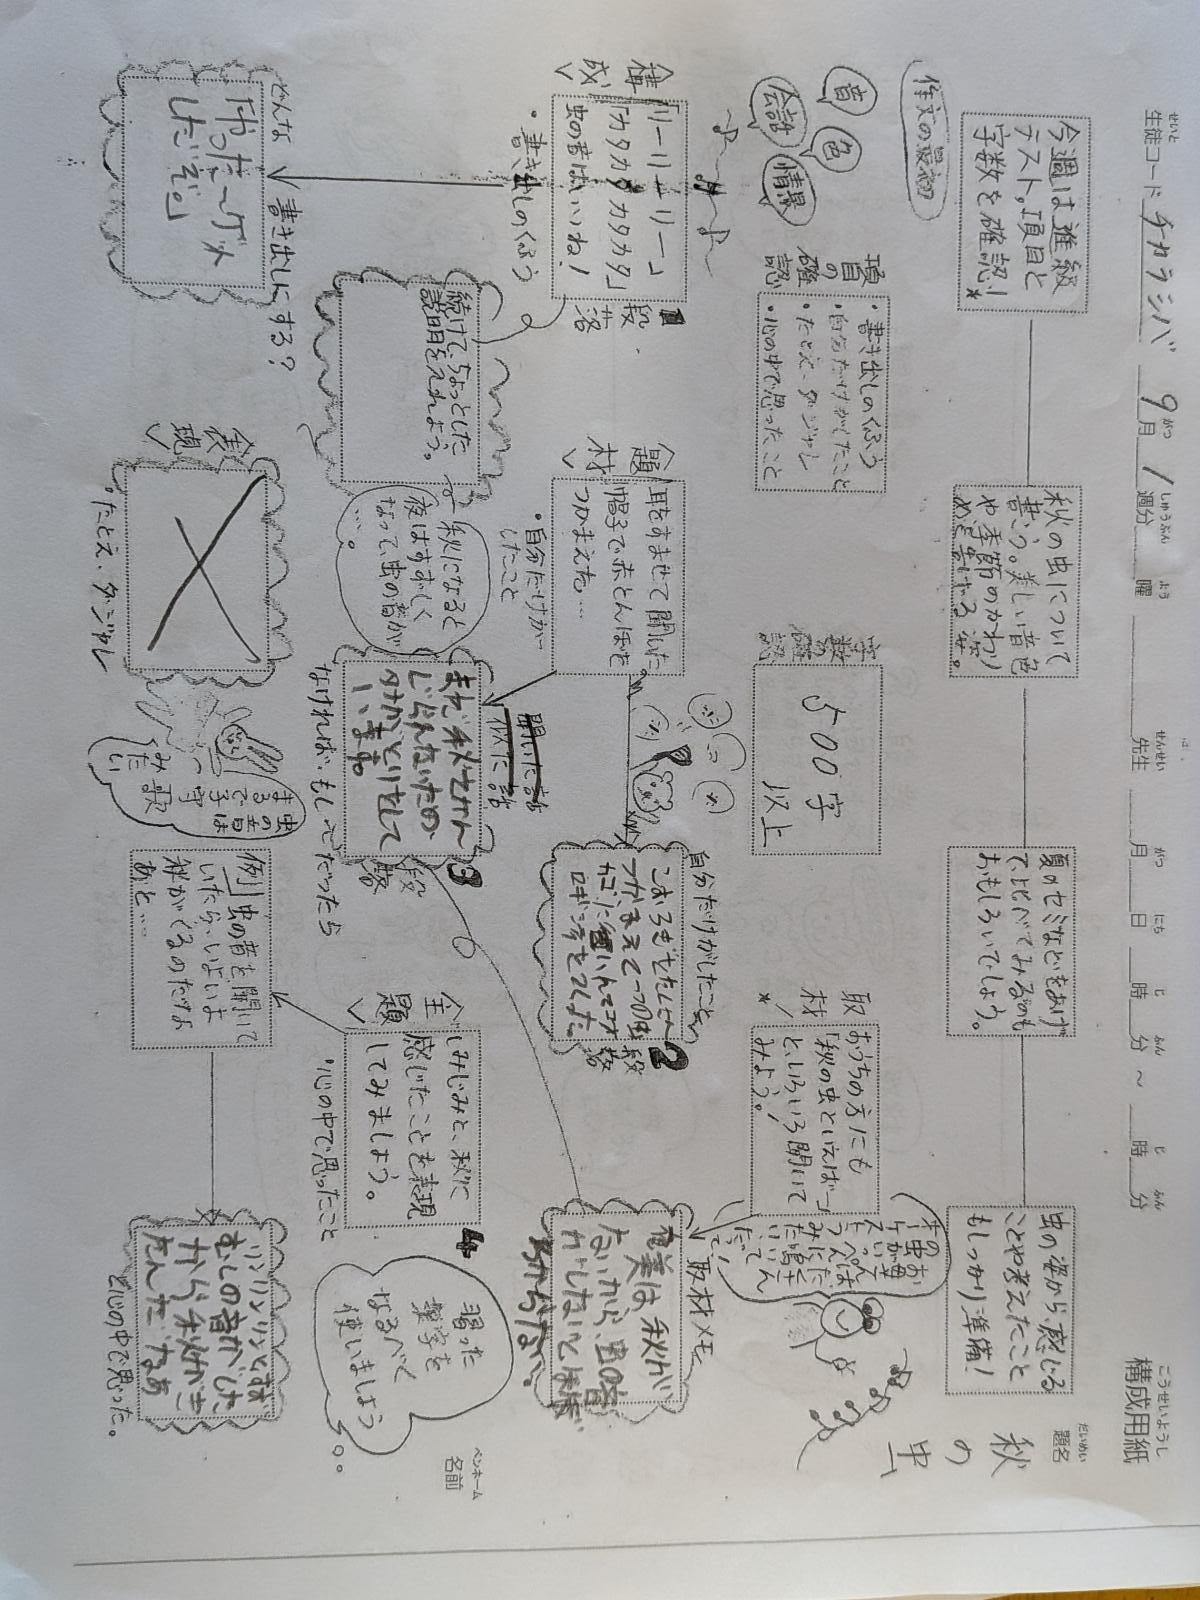 せいと
生徒コード チカラシバ 9月 1週分 曜 先生 月 日 時 分 ~ 時 分
がつ しゅうぶん よう せんせい がつ にち じ ふん じ ふん
こうせいようし
構成用紙
だいめい
題名
秋の虫
ペンネーム
名前
今週は進級
テスト。項目と
字数を確認!*
秋の虫について
書こう。美しい音色
や季節のかわり
夏のセミなどをあげ
て、比べてみるのも
おもしろいでしょう。
虫の姿から感じる
ことや考えたこと
もしっかり準備!
作文の最初
音
色
会話
情景
項目の確認
・書き出しのくふう
・自分だけがしたこと
・たとえ・ダジャレ
・心の中で思ったこと
字数の確認
500字
以上
取材
おうちの方にも
「秋の虫といえば…」
といろいろ聞いて
みよう。!
取材メモ
<構成>
「リーリーリーリー」
「カタカタカタカタ」
虫の音はいいね!
・書き出しのくふう
1段落
<題材>
耳をすませて聞いた。
帽子で赤とんぼを
つかまえた…
・自分だけが
したこと
自分だけがしたこと
2段落
奄美は秋が
ないから、虫の音
どんな書き出しにする?
したぞ。」
続けて、ちょっとした
説明を入れよう。
秋になると
夜はすずしく
なって、虫の音が
…。
聞いた話
似た話
まだ秋をかん
じられないため
なければいもしもだったら
3段落
<表現>
・たとえ・ダジャレ
虫の音は
まるで子守
歌
みたい
<主題>
しみじみと、秋に
感じたことを表現
してみましょう。
・心の中で思ったこと
4
習った
漢字を
なるべく
使いましょう
例)虫の音を聞いて
いたら、いよいよ
秋がくるのだなあ
と…
リンリンリンとすず
むしの音がした
から秋がき
たんだなあ
と心の中で思った。